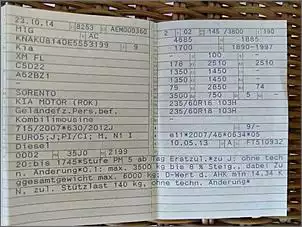 23.10.14 8253 AEM000360
M1G AC
KNAKU814DE5553199 9
Kia
XM FL
C5D22
A62BZ1
-
SORENTO
KIA MOTOR (ROK)
Geländefz.Pers.bef.
Kombilimousine
715/2007*630/2012J
EURO5;J;PI/CI; M, N1 I
Diesel
0002 35J0 2199
20:bis 1745*Stufe PM 5 ab Tag Erstzul.*zu J: ohne tech
n. Änderung*O.1: max. 3500 kg bis 8 % Steig., dabei Zu
ggesamtgewicht max. 6000 kg; D-Wert d. AHK min 14.34 K
N, zul. Stützlast 140 kg, ohne techn. Änderung*
2 02 145 /3800 190
4685 1885-
1700 1890-1997
- 100 -
178 2510 2510
1350 1450 -
1350 1450 -
75 2500 750
79 AC -
235/60R18 103H
235/60R18 103H
- 9/-
e11*2007/46*0634*05
10.05.13 A FT510932